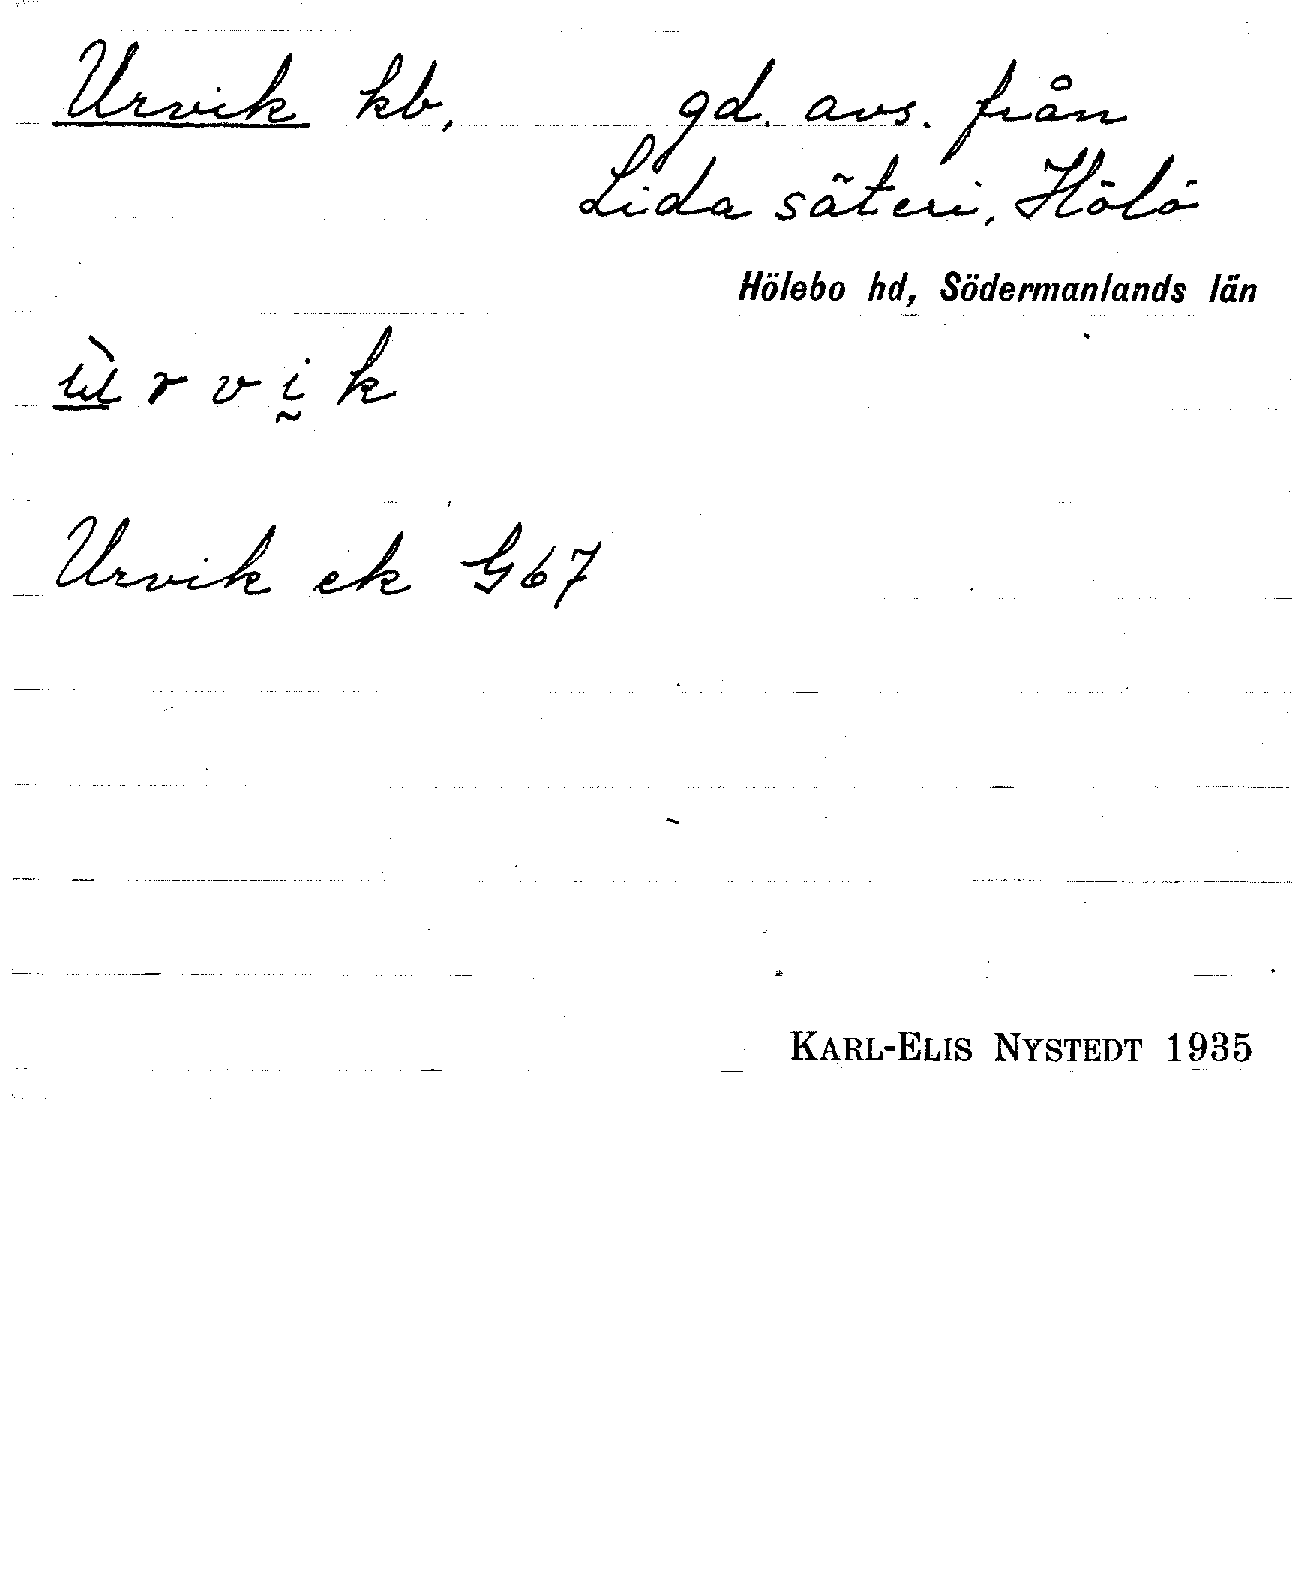 Urvik kb, gd. avs. från
Lida säteri, Hölö
Hölebo hd, Södermanlands län
ù̲ r v ḭ k
Urvik ek G67
KARL-ELIS NYSTEDT 1935